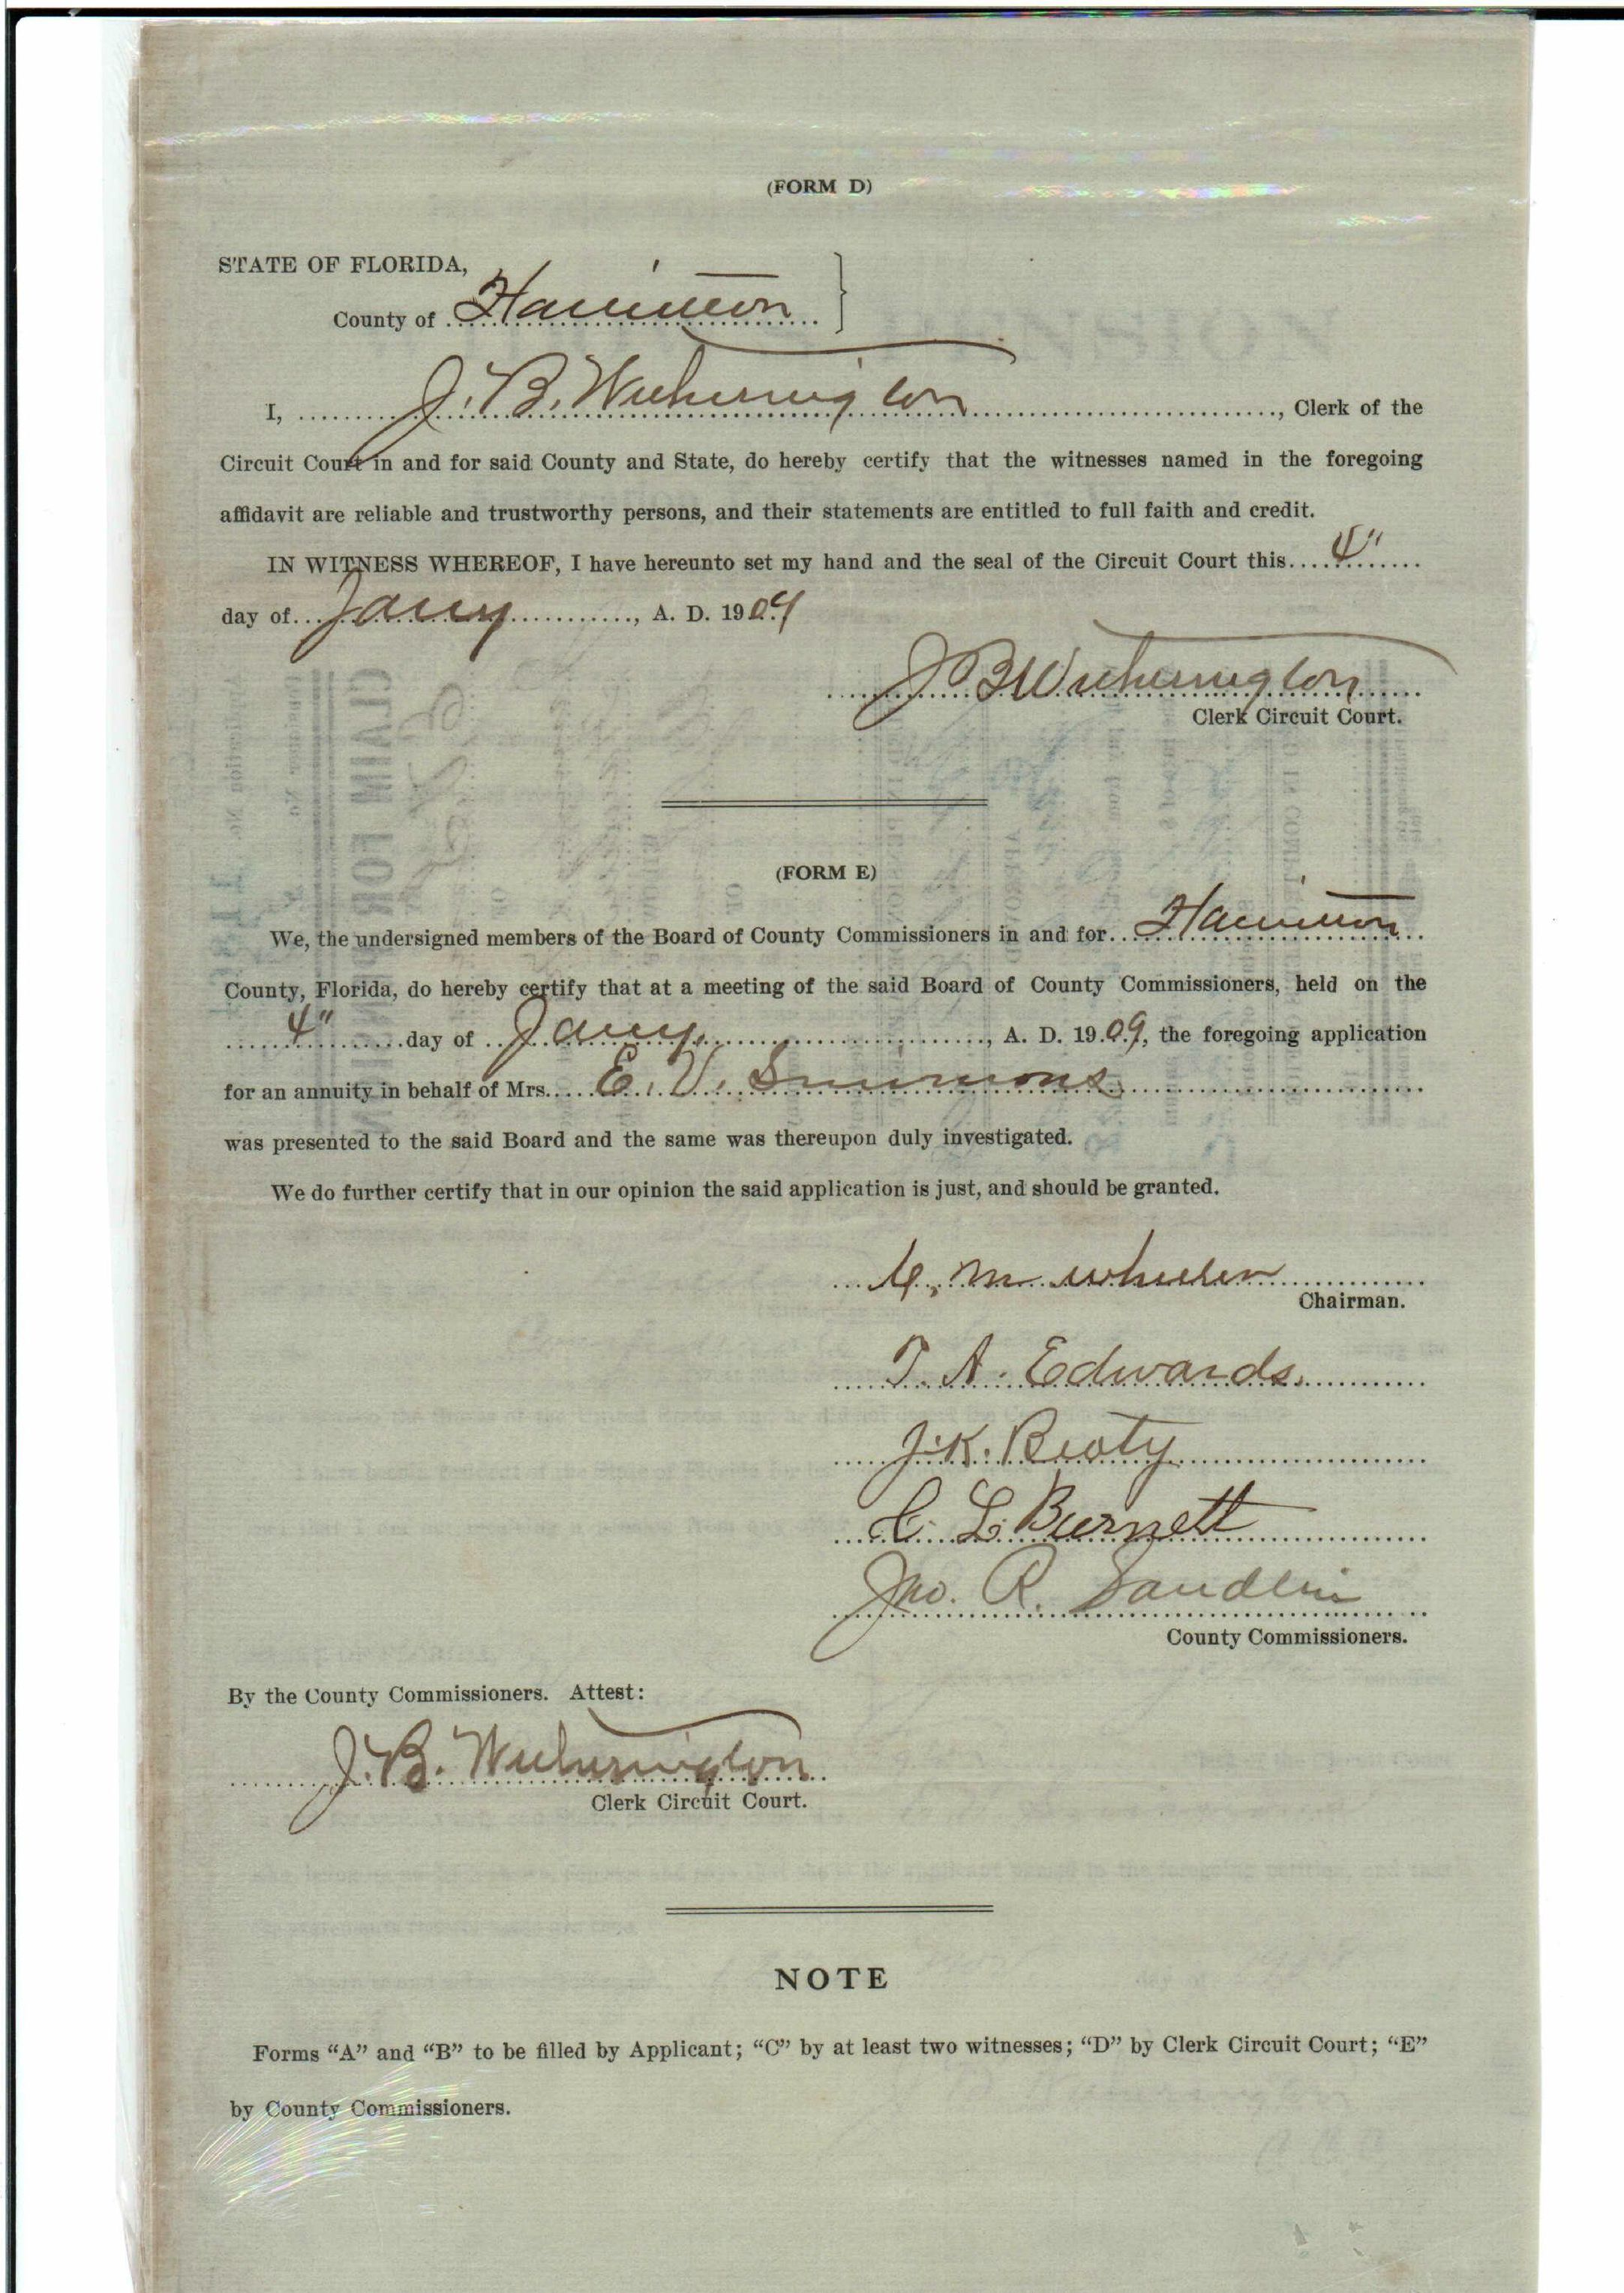 (FORM D)
STATE OF FLORIDA,
County of Hamilton
I, J. B. Witherington, Clerk of the
Circuit Court in and for said County and State, do hereby certify that the witnesses named in the foregoing
affidavit are reliable and trustworthy persons, and their statements are entitled to full faith and credit.
IN WITNESS WHEREOF, I have hereunto set my hand and the seal of the Circuit Court this 4"
day of Jany, A. D. 1909
J B Witherington
Clerk Circuit Court.
(FORM E)
We, the undersigned members of the Board of County Commissioners in and for Hamilton
County, Florida, do hereby certify that at a meeting of the said Board of County Commissioners, held on the
4" day of Jany, A. D. 1909, the foregoing application
for an annuity in behalf of Mrs. E. V. Simmons
was presented to the said Board and the same was thereupon duly investigated.
We do further certify that in our opinion the said application is just, and should be granted.
C. M. Wheeler
Chairman.
T. A. Edwards.
J. K. Beaty
C. L. Burnett
Jno. R. Sandlin
County Commissioners.
By the County Commissioners. Attest:
J. B. Witherington
Clerk Circuit Court.
NOTE
Forms “A” and “B” to be filled by Applicant; “C” by at least two witnesses; “D” by Clerk Circuit Court; “E”
by County Commissioners.